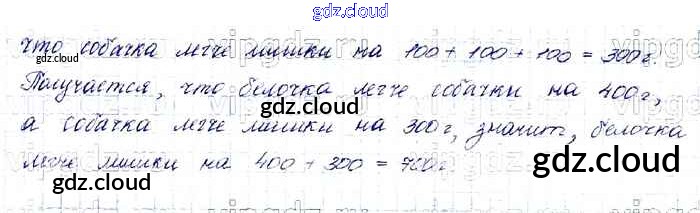 gdz.cloud
что собачка легче мишки на 100 + 100 + 100 = 300г.
gdz.cloud
Получается, что белочка легче собачки на 400г,
gdz.cloud
а собачка легче мишки на 300г, значит, белочка
легче мишки на 400 + 300 = 700г.
gdz.cloud
gdz.cloud